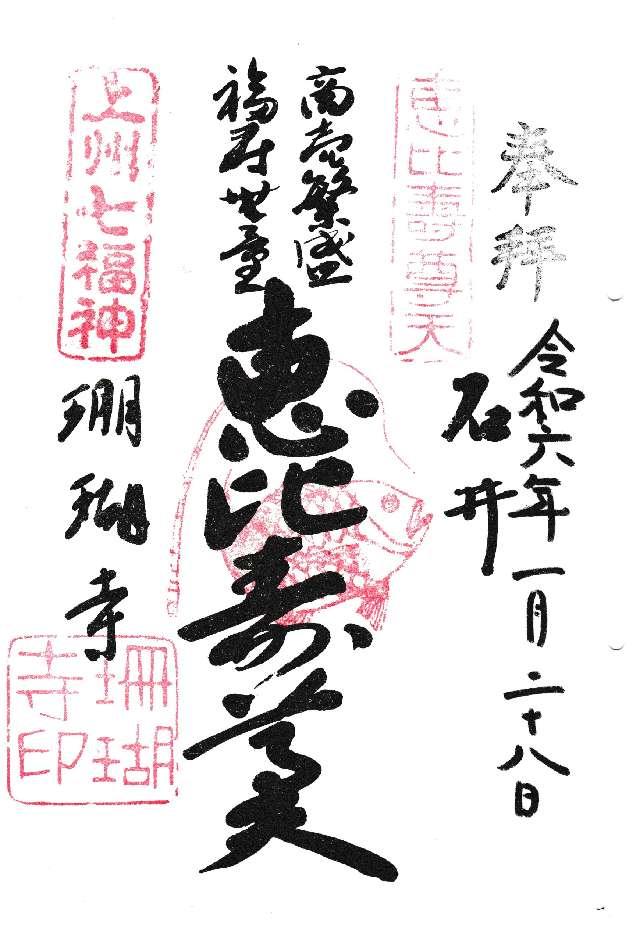 奉拝
令和六年一月二十八日
石井
恵比寿尊天
商売繁盛
福寿無量
恵比寿尊天
上州七福神
珊瑚寺
珊瑚
寺印